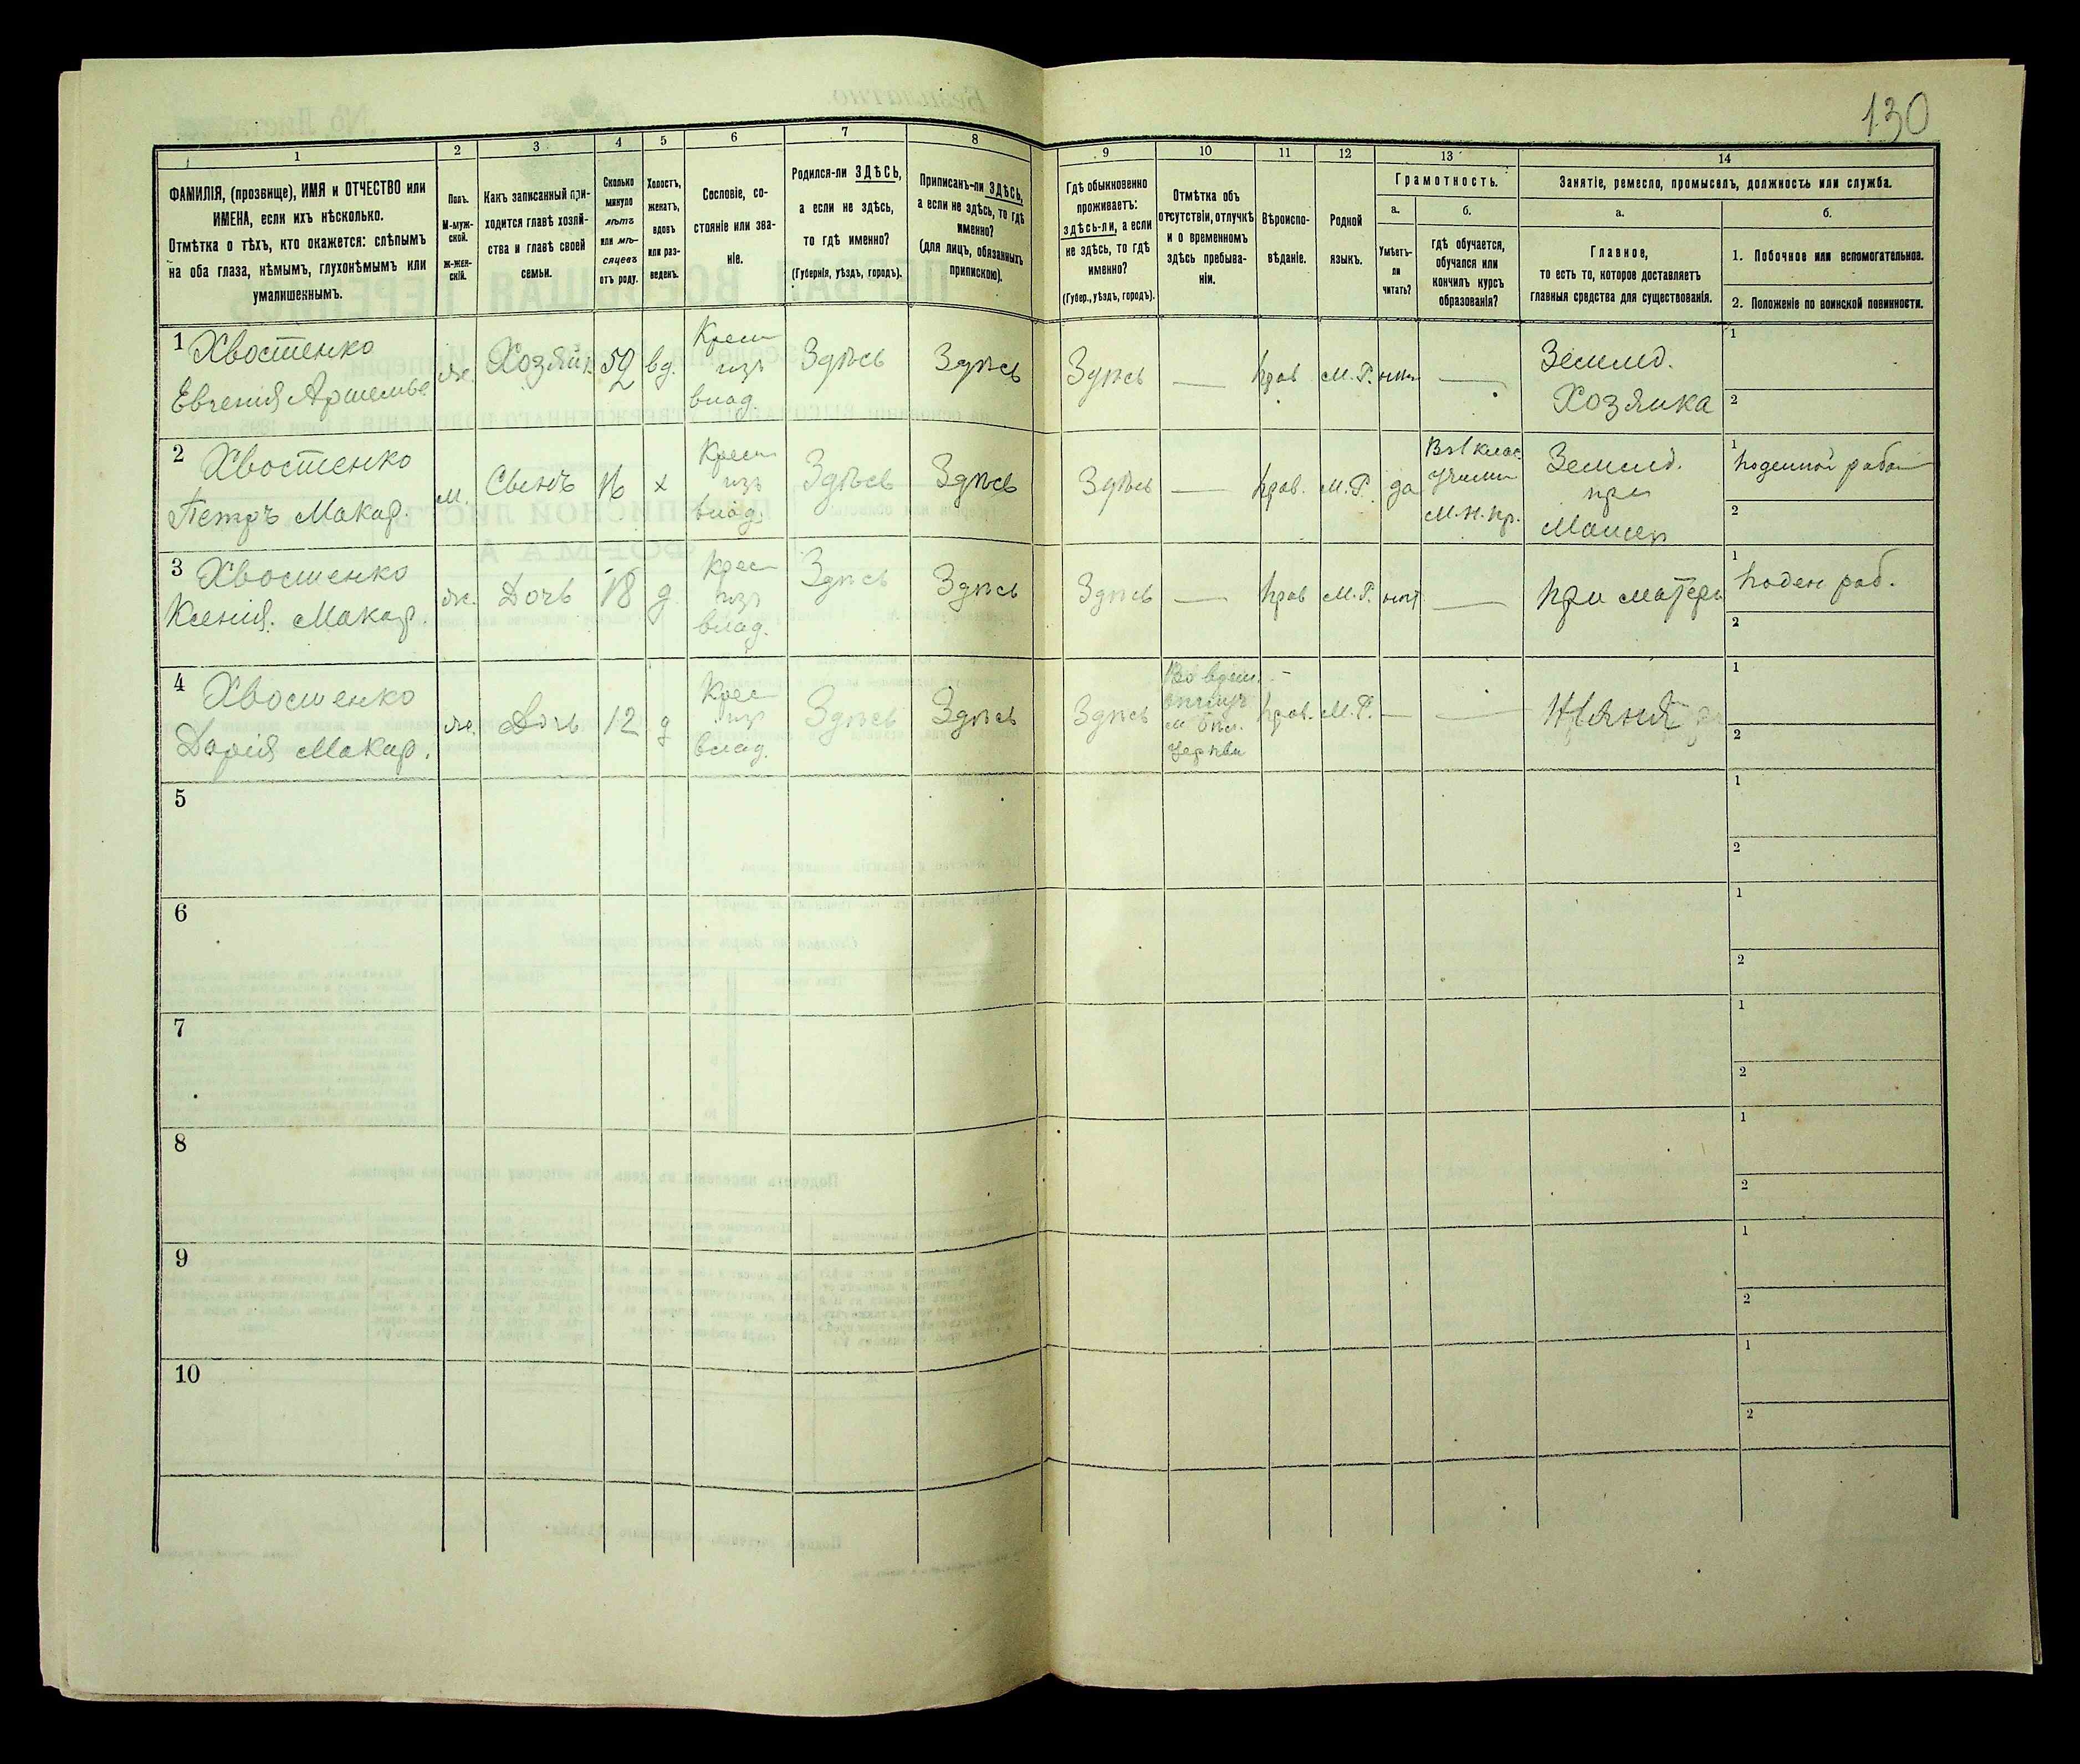 130
1
2
3
4
5
6
7
8
9
10
11
12
13
14
ФАМИЛІЯ, (прозвище), ИМЯ и ОТЧЕСТВО или
ИМЕНА, если ихъ нѣсколько.
Отмѣтка о тѣхъ, кто окажется: слѣпымъ
на оба глаза, нѣмымъ, глухонѣмымъ или
умалишеннымъ.
Полъ.
М-муж-
ской.
Ж-жен-
скій.
Какъ записанный при-
ходится главѣ хозяй-
ства и главѣ своей
семьи.
Сколько
минуло
лѣтъ
или мѣ-
сяцевъ
отъ роду.
Холостъ,
женатъ,
вдовъ
или раз-
веденъ.
Сословіе, со-
стояніе или зва-
ніе.
Родился-ли ЗДѢСЬ,
а если не здѣсь,
то гдѣ именно?
(Губернія, уѣздъ, городъ).
Приписанъ-ли ЗДѢСЬ,
а если не здѣсь, то гдѣ
именно?
(для лицъ, обязанныхъ
припискою).
Гдѣ обыкновенно
проживаетъ:
здѣсь-ли, а если
не здѣсь, то гдѣ
именно?
(Губер., уѣздъ, городъ).
Отмѣтка объ
отсутствіи, отлучкѣ
и о временномъ
здѣсь пребыва-
ніи.
Вѣроиспо-
вѣданіе.
Родной
языкъ.
Грамотность.
а.
Умѣетъ-
ли
читать?
б.
гдѣ обучается,
обучался или
кончилъ курсъ
образованія?
Занятіе, ремесло, промыселъ, должность или служба.
а.
Главное,
то есть то, которое доставляетъ
главныя средства для существованія.
б.
1. Побочное или вспомогательное.
2. Положеніе по воинской повинности.
1 Хвостенко
Евгенія
ж.
52
вд.
Крест
изъ
влад.
Здѣсь
Здѣсь
Здѣсь
—
прав
М.Р.
—
Землед.
Хозяйка
1
2
2 Хвостенко
Петръ Макар.
м.
Сынъ
16
х
Крест
изъ
влад.
Здѣсь
Здѣсь
Здѣсь
—
прав.
М.Р.
да
М.Н.пр.
Землед.
при
1
2
3 Хвостенко
Ксенія. Макар.
ж.
Дочь
18
д
Крест
изъ
влад.
Здѣсь
Здѣсь
Здѣсь
—
прав
М.Р.
нѣт
—
при матери
1 поден раб.
2
4 Хвостенко
Дарія Макар.
ж.
Дочь
12
д
Крест
изъ
влад.
Здѣсь
Здѣсь
Здѣсь
Церкви
прав.
М.Р.
—
—
1
2
5
1
2
6
1
2
7
1
2
8
1
2
9
1
2
10
1
2